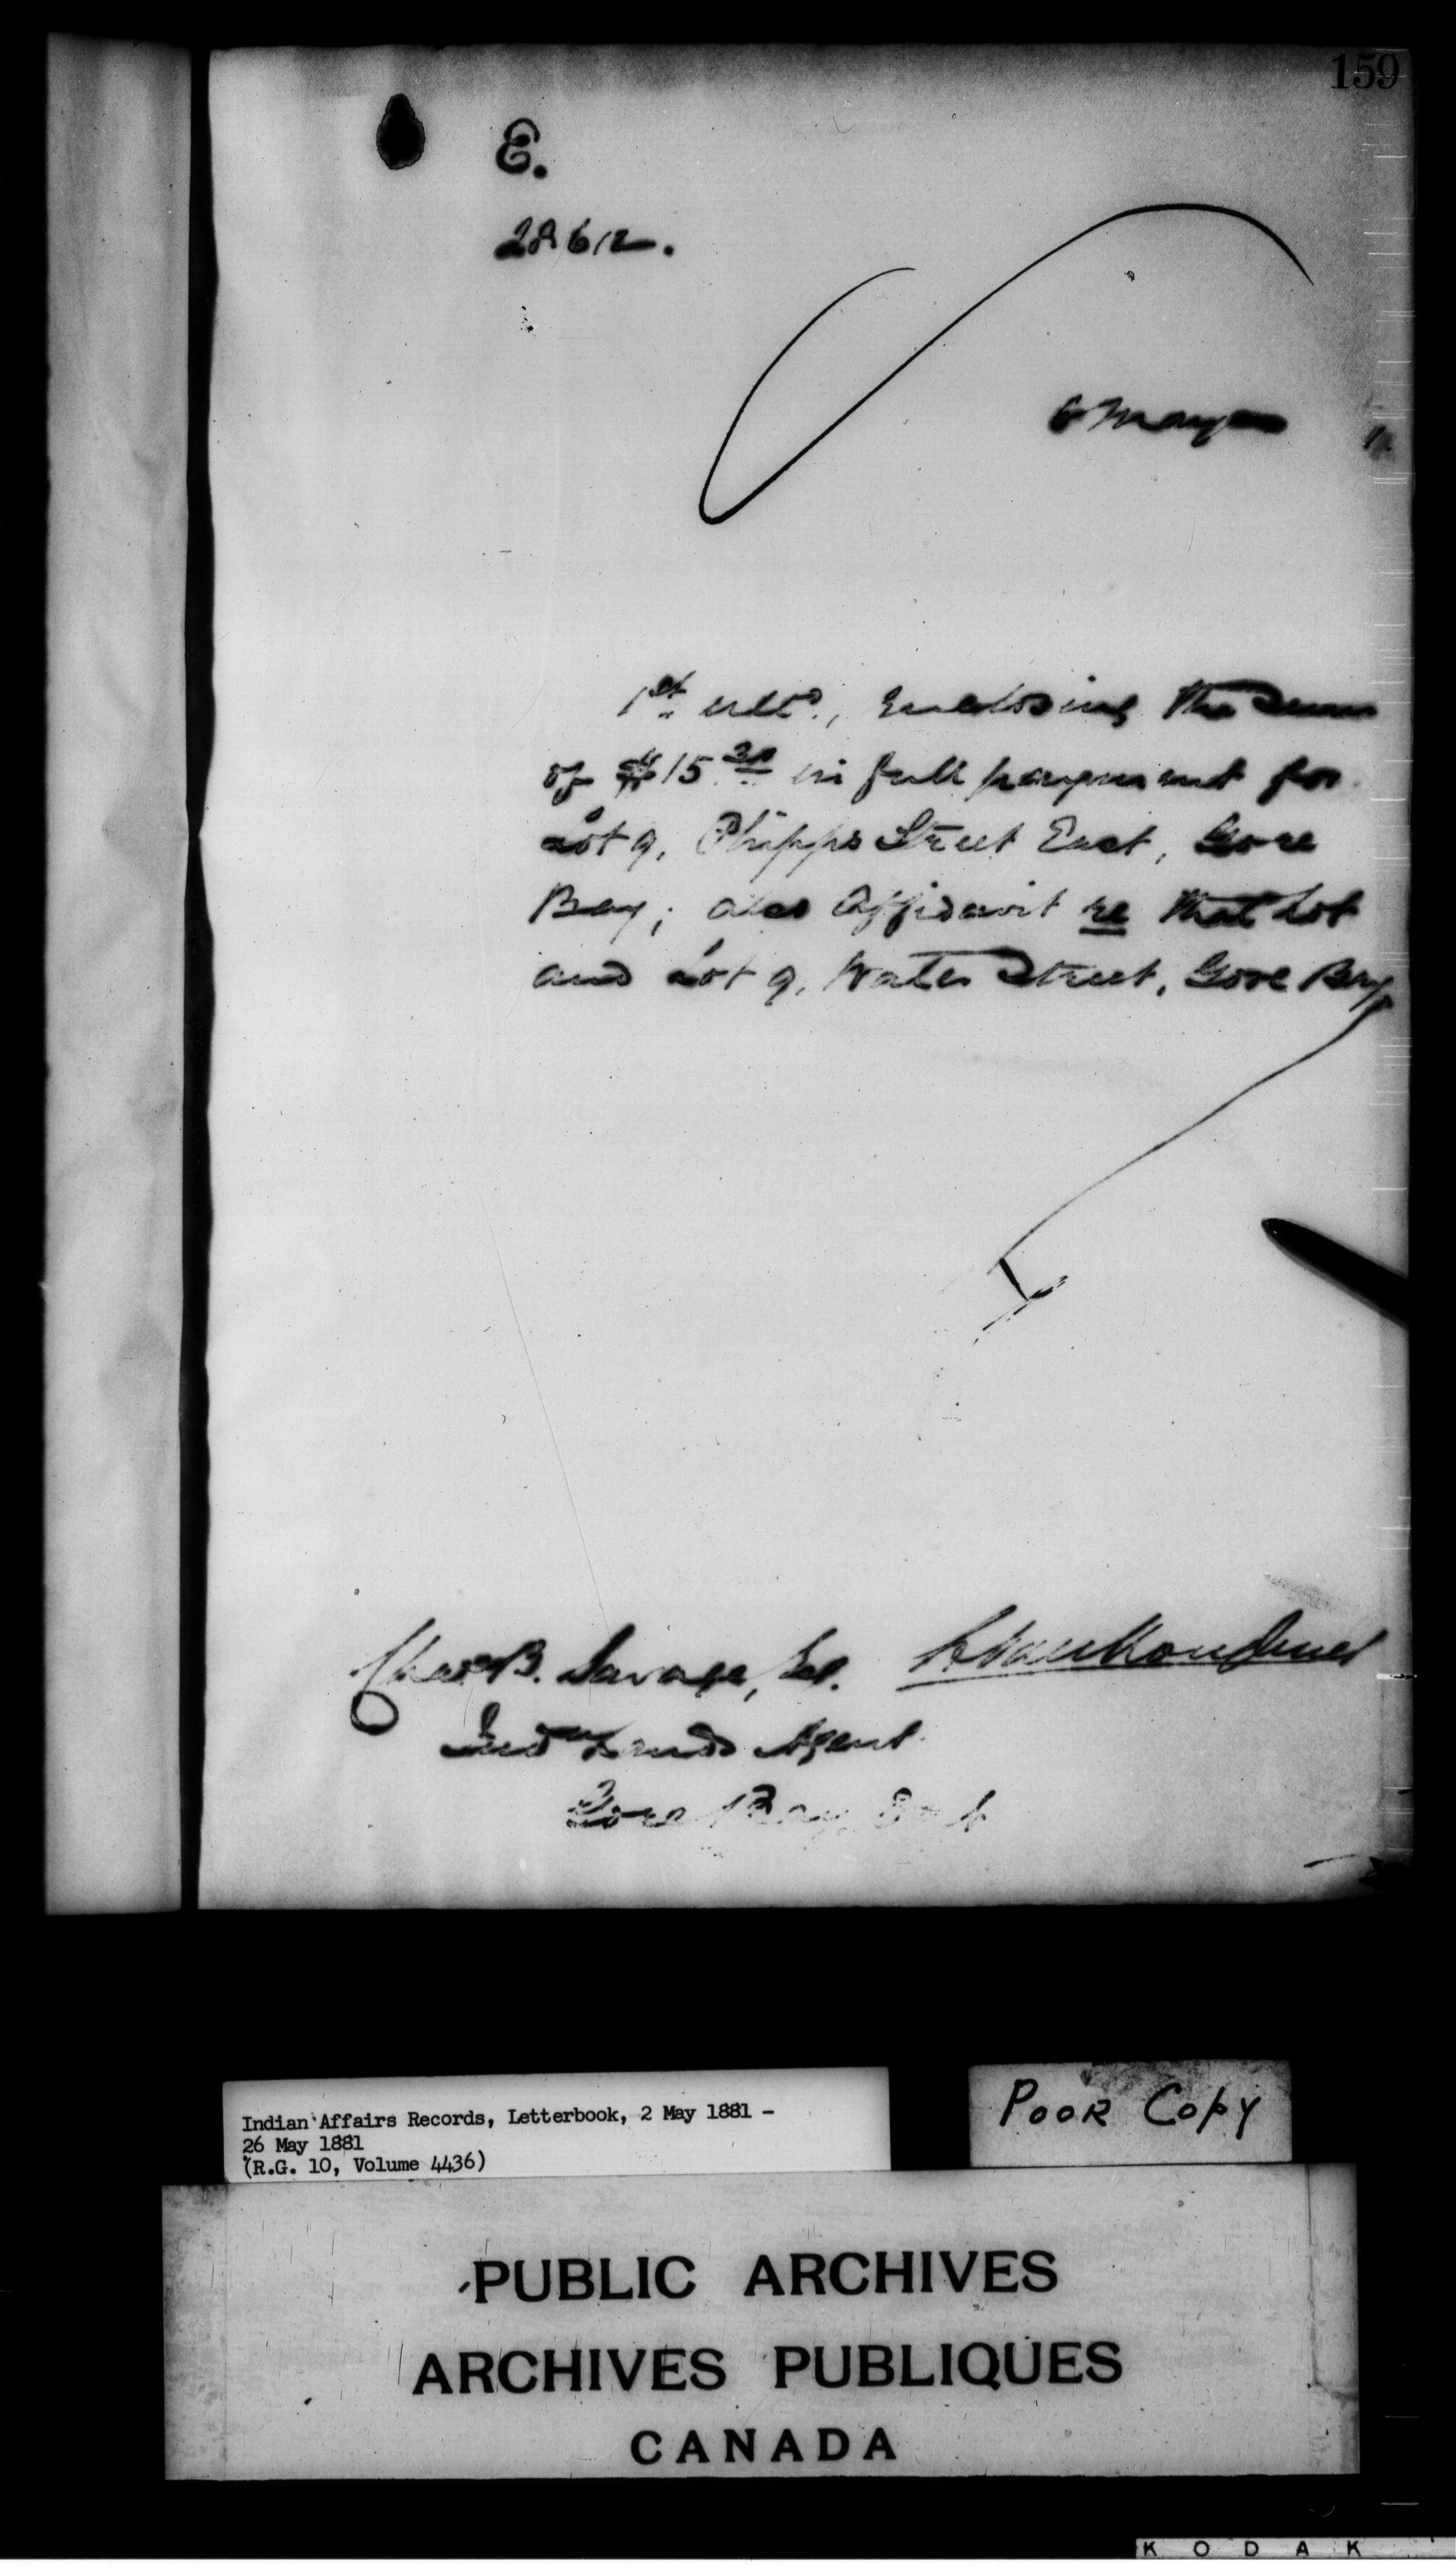 159
E.
28612.
6 May
1st ulto., enclosing the sum
of $15.30 in full payment for
Lot 9, Phipps Street East, Gore
Bay; also Affidavit re that lot
and Lot 9, Water Street, Gore Bay
Chas B. Savage, Esq. L VanKoughnet
Indn Lands Agent
Gore Bay, Ont
Indian Affairs Records, Letterbook, 2 May 1881 -
26 May 1881
(R.G. 10, Volume 4436)
POOR COPY
PUBLIC ARCHIVES
ARCHIVES PUBLIQUES
CANADA
KODAK